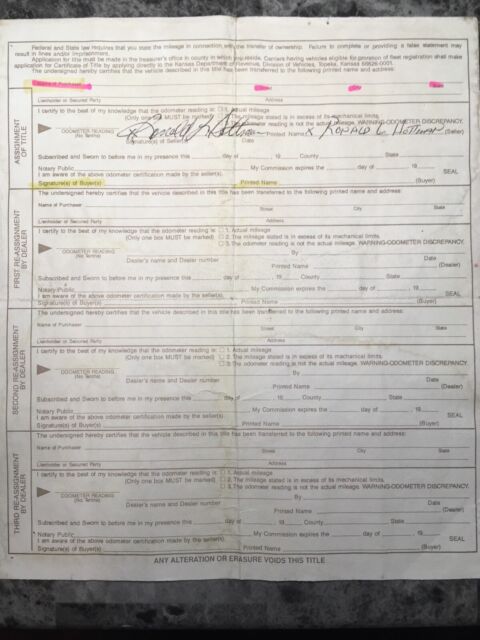 Federal and State law requires that you state the mileage in connection with the transfer of ownership. Failure to complete or providing a false statement may
result in fines and/or imprisonment.
Application for title must be made in the treasurer's office in county in which you reside. Carriers having vehicles eligible for proration of fleet registration shall make
application for Certificate of Title by applying directly to the Kansas Department of Revenue, Division of Vehicles, Topeka, Kansas 66626-0001.
The undersigned hereby certifies that the vehicle described in this title has been transferred to the following printed name and address:
Name of Purchaser Street City State
Lienholder or Secured Party Address
ASSIGNMENT
OF TITLE
I certify to the best of my knowledge that the odometer reading is: 1. Actual mileage
(Only one box MUST be marked)
3. The odometer reading is not the actual mileage. WARNING-ODOMETER DISCREPANCY.
ODOMETER READING
(No Tenths)
Signature(s) of Seller(s) Date
Printed Name x RONALD (Seller)
Subscribed and Sworn to before me in my presence this day of , 19 County State
Notary Public My Commission expires the day of , 19
I am aware of the above odometer certification made by the seller(s). SEAL
Signature(s) of Buyer(s) Printed Name (Buyer)
FIRST REASSIGNMENT
BY DEALER
The undersigned hereby certifies that the vehicle described in this title has been transferred to the following printed name and address:
Name of Purchaser Street City State
Lienholder or Secured Party Address
I certify to the best of my knowledge that the odometer reading is: 1. Actual mileage
(Only one box MUST be marked) 2. The mileage stated is in excess of its mechanical limits.
3. The odometer reading is not the actual mileage. WARNING-ODOMETER DISCREPANCY.
ODOMETER READING
(No Tenths)
By Date
Dealer's name and Dealer number Printed Name (Dealer)
Subscribed and Sworn to before me in my presence this day of , 19 County State
Notary Public My Commission expires the day of , 19
I am aware of the above odometer certification made by the seller(s). SEAL
Signature(s) of Buyer(s) Printed Name (Buyer)
SECOND REASSIGNMENT
BY DEALER
The undersigned hereby certifies that the vehicle described in this title has been transferred to the following printed name and address:
Name of Purchaser Street City State
Lienholder or Secured Party Address
I certify to the best of my knowledge that the odometer reading is: 1. Actual mileage
(Only one box MUST be marked) 2. The mileage stated is in excess of its mechanical limits.
3. The odometer reading is not the actual mileage. WARNING-ODOMETER DISCREPANCY.
ODOMETER READING
(No Tenths)
By Date
Dealer's name and Dealer number Printed Name (Dealer)
Subscribed and Sworn to before me in my presence this day of , 19 County State
Notary Public My Commission expires the day of , 19
I am aware of the above odometer certification made by the seller(s). SEAL
Signature(s) of Buyer(s) Printed Name (Buyer)
THIRD REASSIGNMENT
BY DEALER
The undersigned hereby certifies that the vehicle described in this title has been transferred to the following printed name and address:
Name of Purchaser Street City State
Lienholder or Secured Party Address
I certify to the best of my knowledge that the odometer reading is: 1. Actual mileage
(Only one box MUST be marked) 2. The mileage stated is in excess of its mechanical limits.
3. The odometer reading is not the actual mileage. WARNING-ODOMETER DISCREPANCY.
ODOMETER READING
(No Tenths)
By Date
Dealer's name and Dealer number Printed Name (Dealer)
Subscribed and Sworn to before me in my presence this day of , 19 County State
Notary Public My Commission expires the day of , 19
I am aware of the above odometer certification made by the seller(s). SEAL
Signature(s) of Buyer(s) Printed Name (Buyer)
ANY ALTERATION OR ERASURE VOIDS THIS TITLE